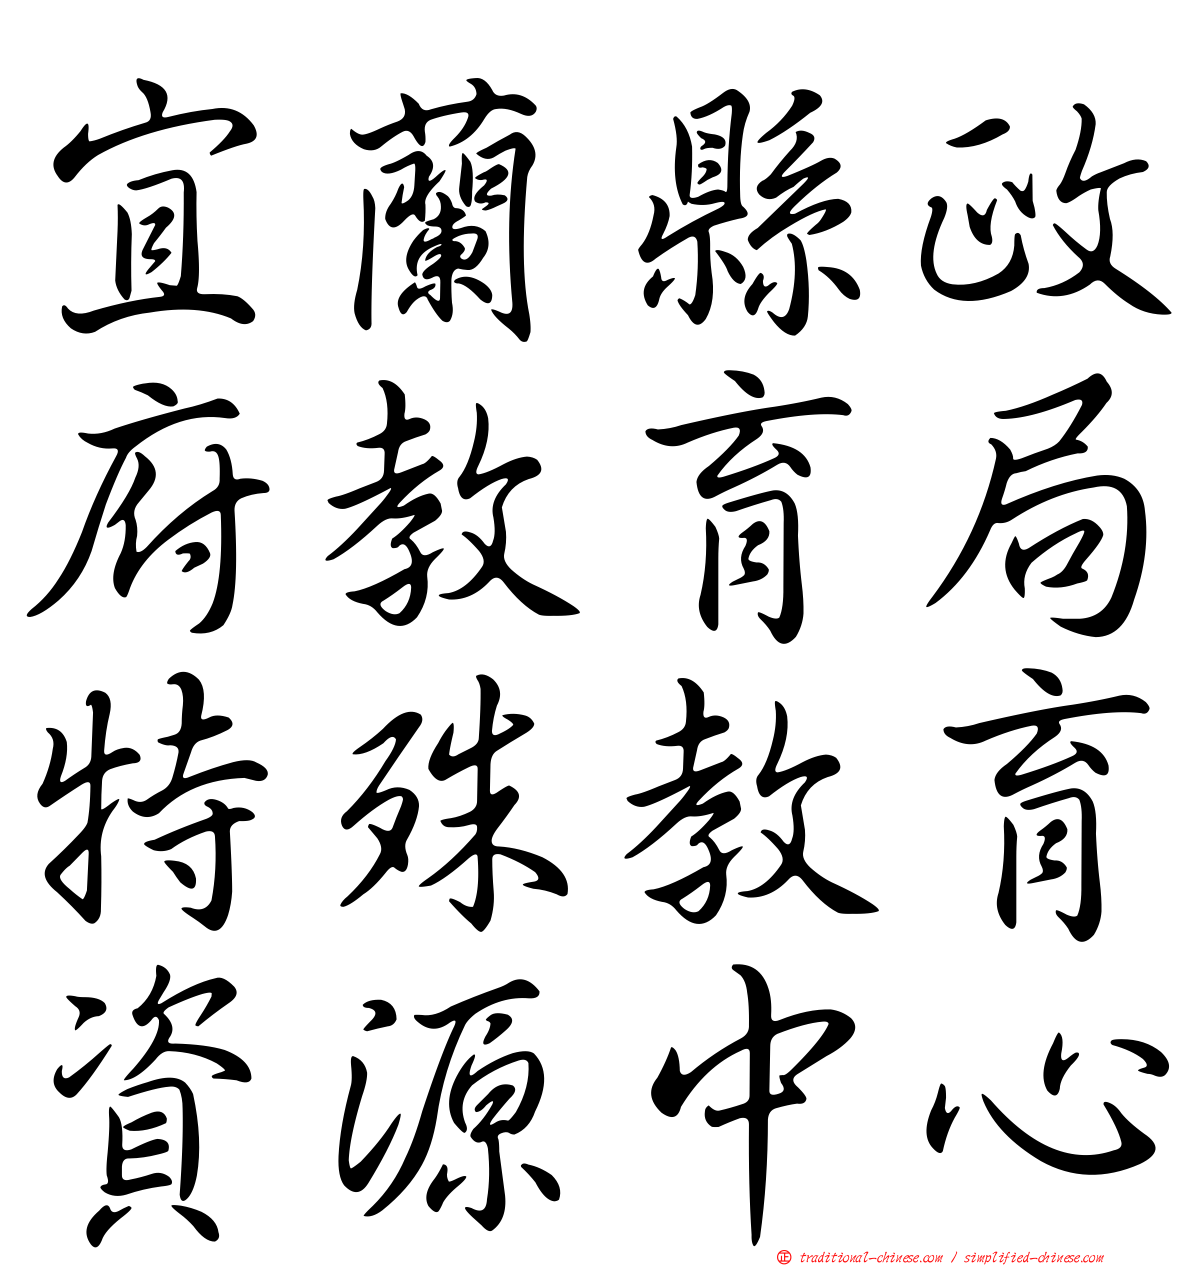 宜蘭縣政
府教育局
特殊教育
資源中心
正 traditional-chinese.com / simplified-chinese.com